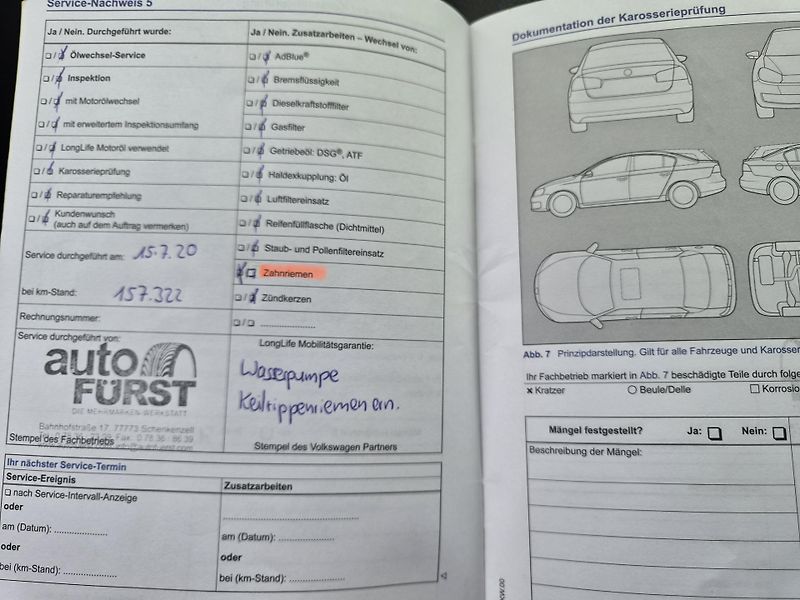 Service-Nachweis 5
Ja / Nein. Durchgeführt wurde:
Ölwechsel-Service
Inspektion
mit Motorölwechsel
mit erweitertem Inspektionsumfang
LongLife Motoröl verwendet
Karosserieprüfung
Reparaturempfehlung
Kundenwunsch
(auch auf dem Auftrag vermerken)
Service durchgeführt am: 15.7.20
bei km-Stand: 157.322
Rechnungsnummer:
Service durchgeführt von:
auto
FÜRST
DIE MEHRMARKEN-WERKSTATT
Bahnhofstraße 17, 77773 Schenkenzell
Stempel des Fachbetriebs
Ja / Nein. Zusatzarbeiten – Wechsel von:
AdBlue®
Bremsflüssigkeit
Dieselkraftstofffilter
Gasfilter
Getriebeöl: DSG®, ATF
Haldexkupplung: Öl
Luftfiltereinsatz
Reifenfüllflasche (Dichtmittel)
Staub- und Pollenfiltereinsatz
Zahnriemen
Zündkerzen
LongLife Mobilitätsgarantie:
Wasserpumpe
Keilrippenriemen ern.
Stempel des Volkswagen Partners
Ihr nächster Service-Termin
Service-Ereignis
nach Service-Intervall-Anzeige
oder
am (Datum): ....................
oder
bei (km-Stand): ....................
Zusatzarbeiten
am (Datum): ....................
oder
bei (km-Stand): ....................
Dokumentation der Karosserieprüfung
Abb. 7 Prinzipdarstellung. Gilt für alle Fahrzeuge und Karosser
Ihr Fachbetrieb markiert in Abb. 7 beschädigte Teile durch folge
× Kratzer Beule/Delle Korrosio
Mängel festgestellt? Ja: Nein:
Beschreibung der Mängel: